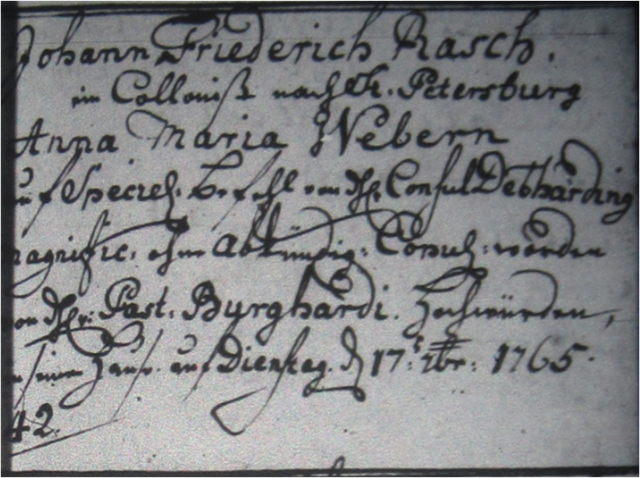 Johann Friederich Rasch.
ein Collonist nach St. Petersburg
Anna Maria Webern
auf Speciel. befehl von H. Consul Debharding
Magnific. ohne Abkündig: Copul: worden
von H: Past: Byrghardi. Hochwürden,
in seinem Hause. auf Dienstag. d 17. 7br. 1765.
42.